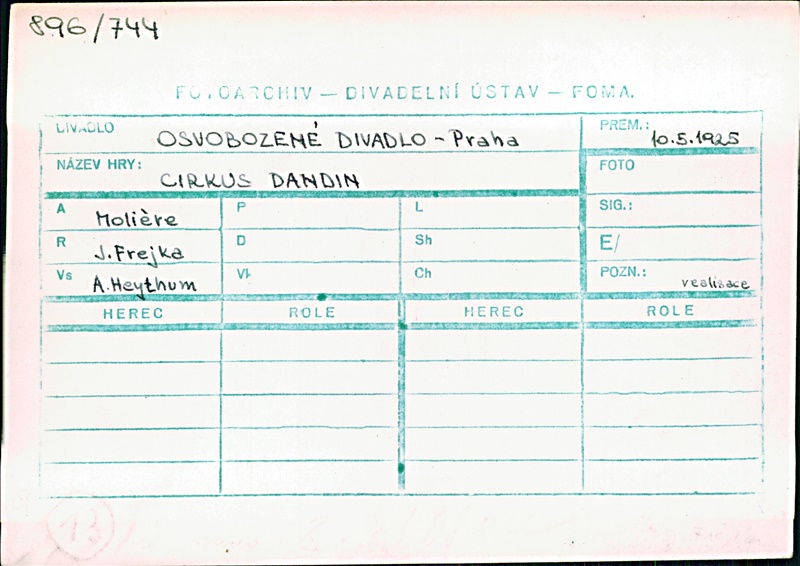 896/744
FOTOARCHIV — DIVADELNÍ ÚSTAV — FOMA.
DIVADLO OSVOBOZENÉ DIVADLO - Praha
PREM.: 10.5.1925
NÁZEV HRY: CIRKUS DANDIN
FOTO
A Molière P L
SIG.:
R J. Frejka D Sh
E/
Vs A. Heythum Vk Ch
POZN.: realisace
HEREC ROLE HEREC ROLE
13